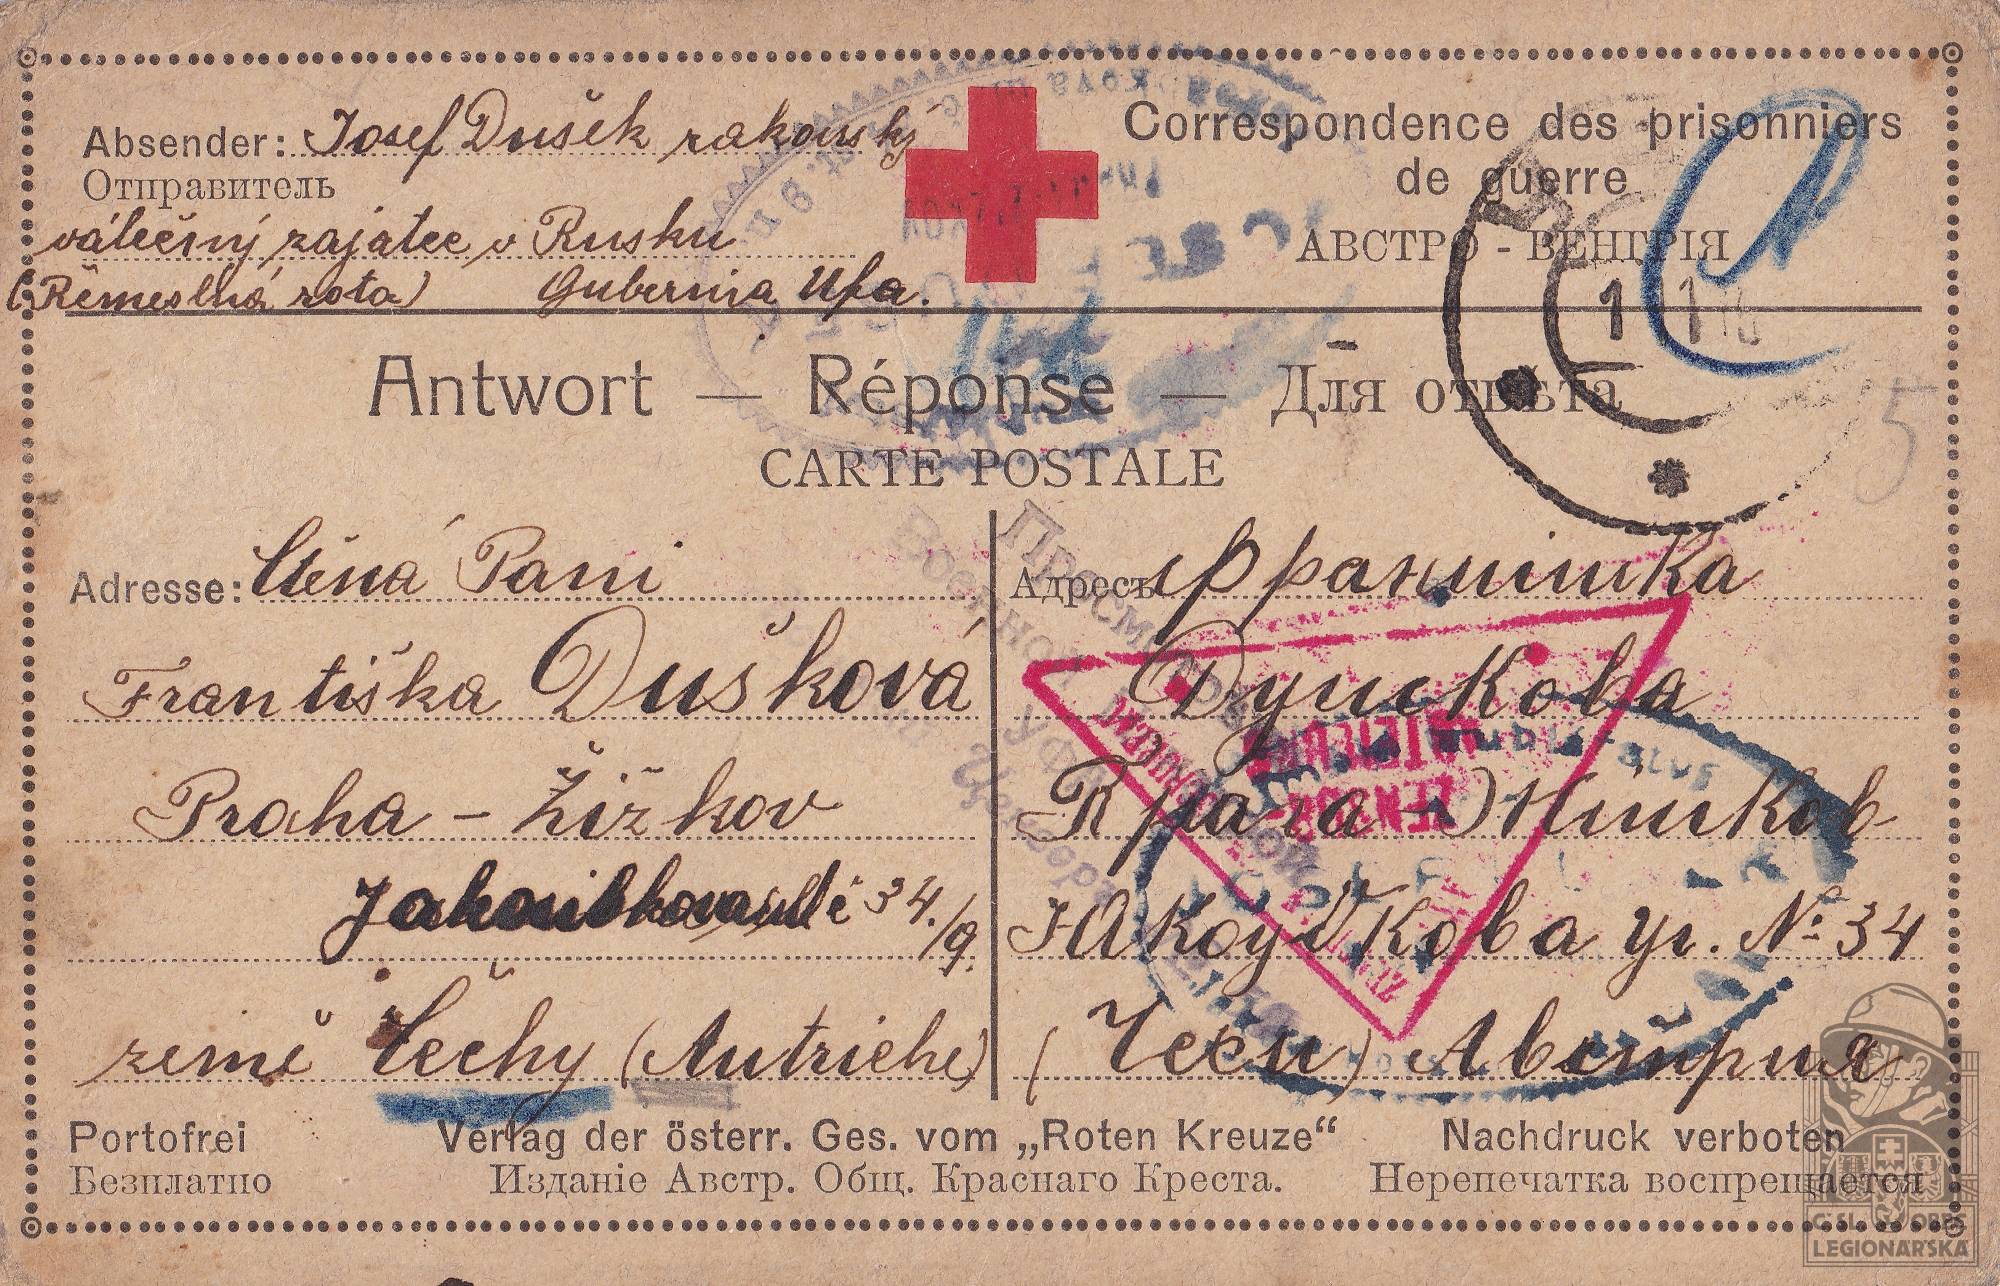 Absender: Josef Dušek rakouský
Отправитель
válečný zajatec v Rusku
(Řemeslná rota) Gubernia Ufa.
Correspondence des prisonniers
de guerre
АВСТРО - ВЕНГРІЯ
Antwort — Réponse — Для отвѣта
CARTE POSTALE
Adresse: Ctěná Paní
Františka Dušková
Praha - Žižkov
34./9.
země Čechy (Autriche)
Адресъ Франтишка
Душкова
Прага - Жишков
Якоубкова ул. № 34
(Чехи) Австрия
Просмотр
Военной
Уфи
Цензоръ
5
Portofrei Verlag der österr. Ges. vom „Roten Kreuze“ Nachdruck verboten
Безплатно Изданіе Австр. Общ. Краснаго Креста. Нерепечатка воспрещается
ČSL. OBEC
LEGIONÁŘSKÁ